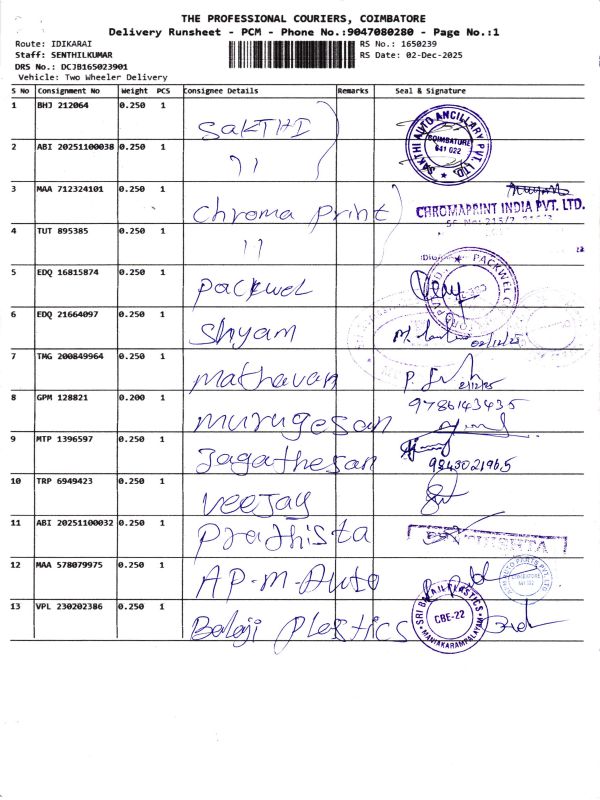 THE PROFESSIONAL COURIERS, COIMBATORE
Delivery Runsheet - PCM - Phone No.:9047080280 - Page No.:1
Route: IDIKARAI RS No.: 1650239
Staff: SENTHILKUMAR RS Date: 02-Dec-2025
DRS No.: DCJB165023901
Vehicle: Two Wheeler Delivery
S No Consignment No Weight PCS Consignee Details Remarks Seal & Signature
1 BHJ 212064 0.250 1 SAKTHI
SAKTHI AUTO ANCILLARY PVT. LTD. COIMBATORE 641 022
2 ABI 20251100038 0.250 1 11
3 MAA 712324101 0.250 1 Chroma print
CHROMAPRINT INDIA PVT. LTD.
4 TUT 895385 0.250 1 11
5 EDQ 16815874 0.250 1 packwel
PACKWEL
6 EDQ 21664097 0.250 1 Shyam 02/12/25
7 TMG 200849964 0.250 1 Mathavan 2/12/25
8 GPM 128821 0.200 1 murugesan 9786143435
9 MTP 1396597 0.250 1 Jagathesan 9843021965
10 TRP 6949423 0.250 1 Veejay
11 ABI 20251100032 0.250 1 Prathista
12 MAA 578079975 0.250 1 AP-M-Auto
13 VPL 230202386 0.250 1 Balaji Plastics
SRI BALAJI PLASTICS CBE-22 MANIAKARAMPALAYAM